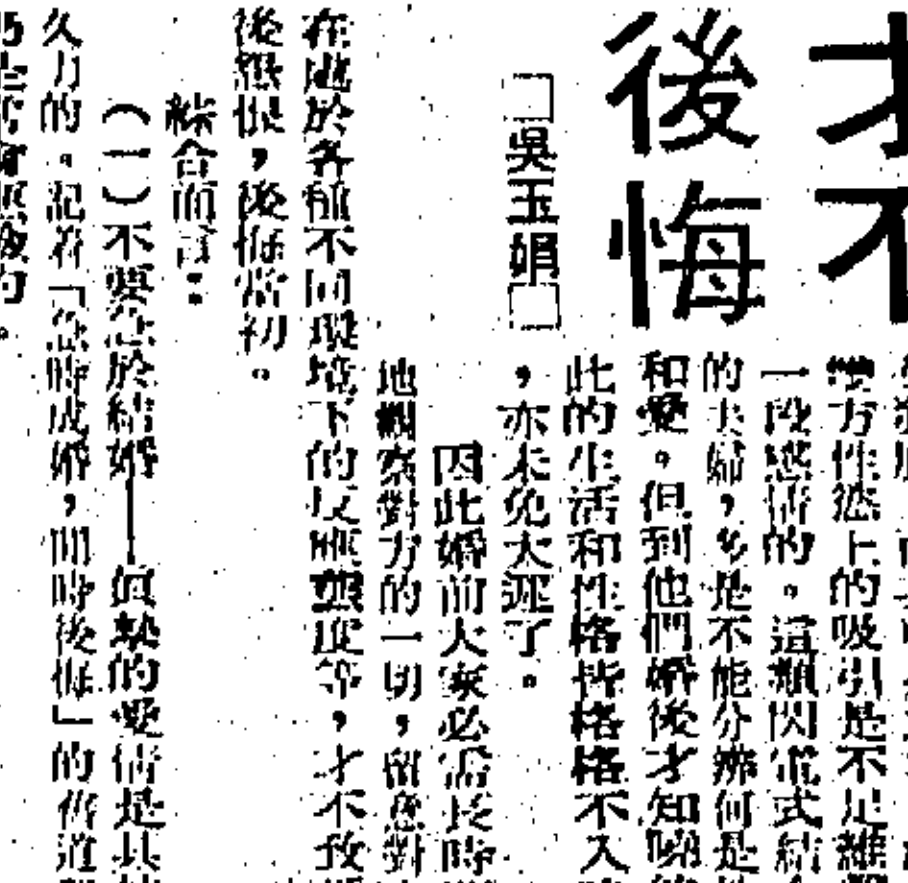 才不
後悔
□吳玉娟□
雙方性慾上的吸引是不足維
一段感情的。這類閃電式結
的夫婦,多是不能分辨何是
和愛。但到他們婚後才知曉
此的生活和性格皆格格不入
,亦未免太遲了。
因此婚前大家必需長時
地觀察對方的一切,留意對
在處於各種不同環境下的反應態度等,才不致
後怨恨,後悔當初。
綜合而言:
(一)不要急於結婚——真摯的愛情是具
久力的。記着「急時成婚,閒時後悔」的舊道